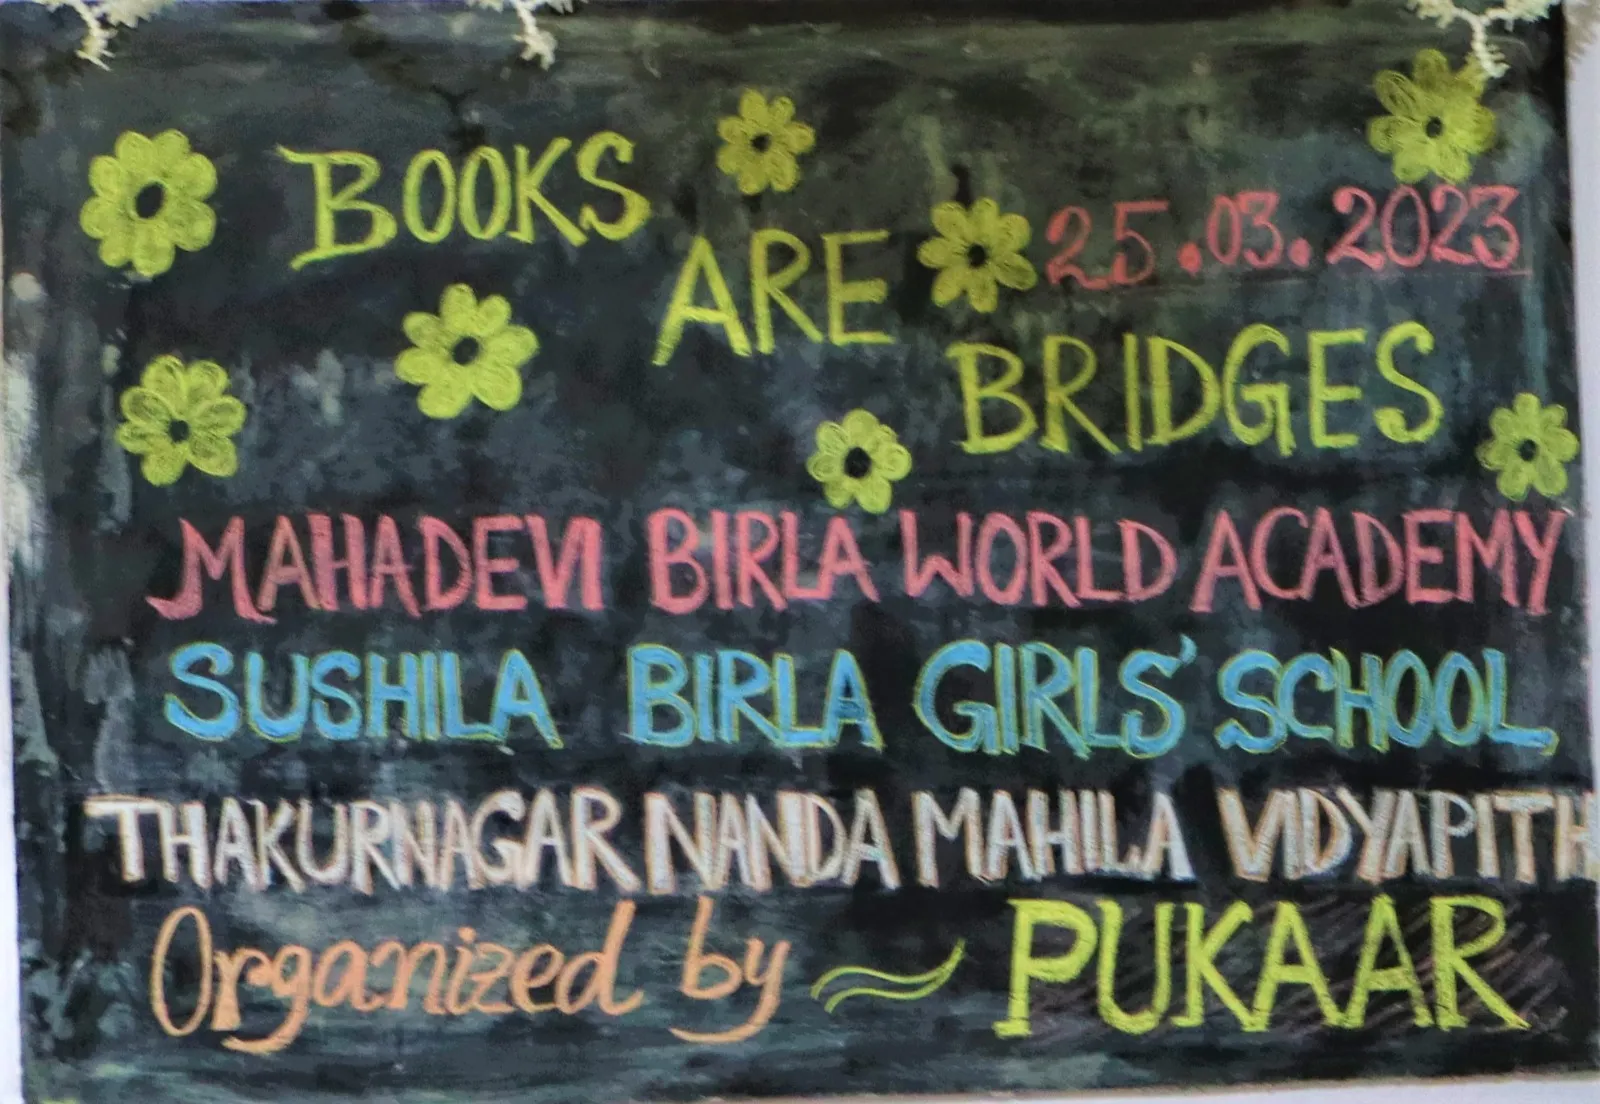 BOOKS
ARE
25.03.2023
BRIDGES
MAHADEVI BIRLA WORLD ACADEMY
SUSHILA BIRLA GIRLS' SCHOOL
THAKURNAGAR NANDA MAHILA VIDYAPITH
Organized by ~ PUKAAR